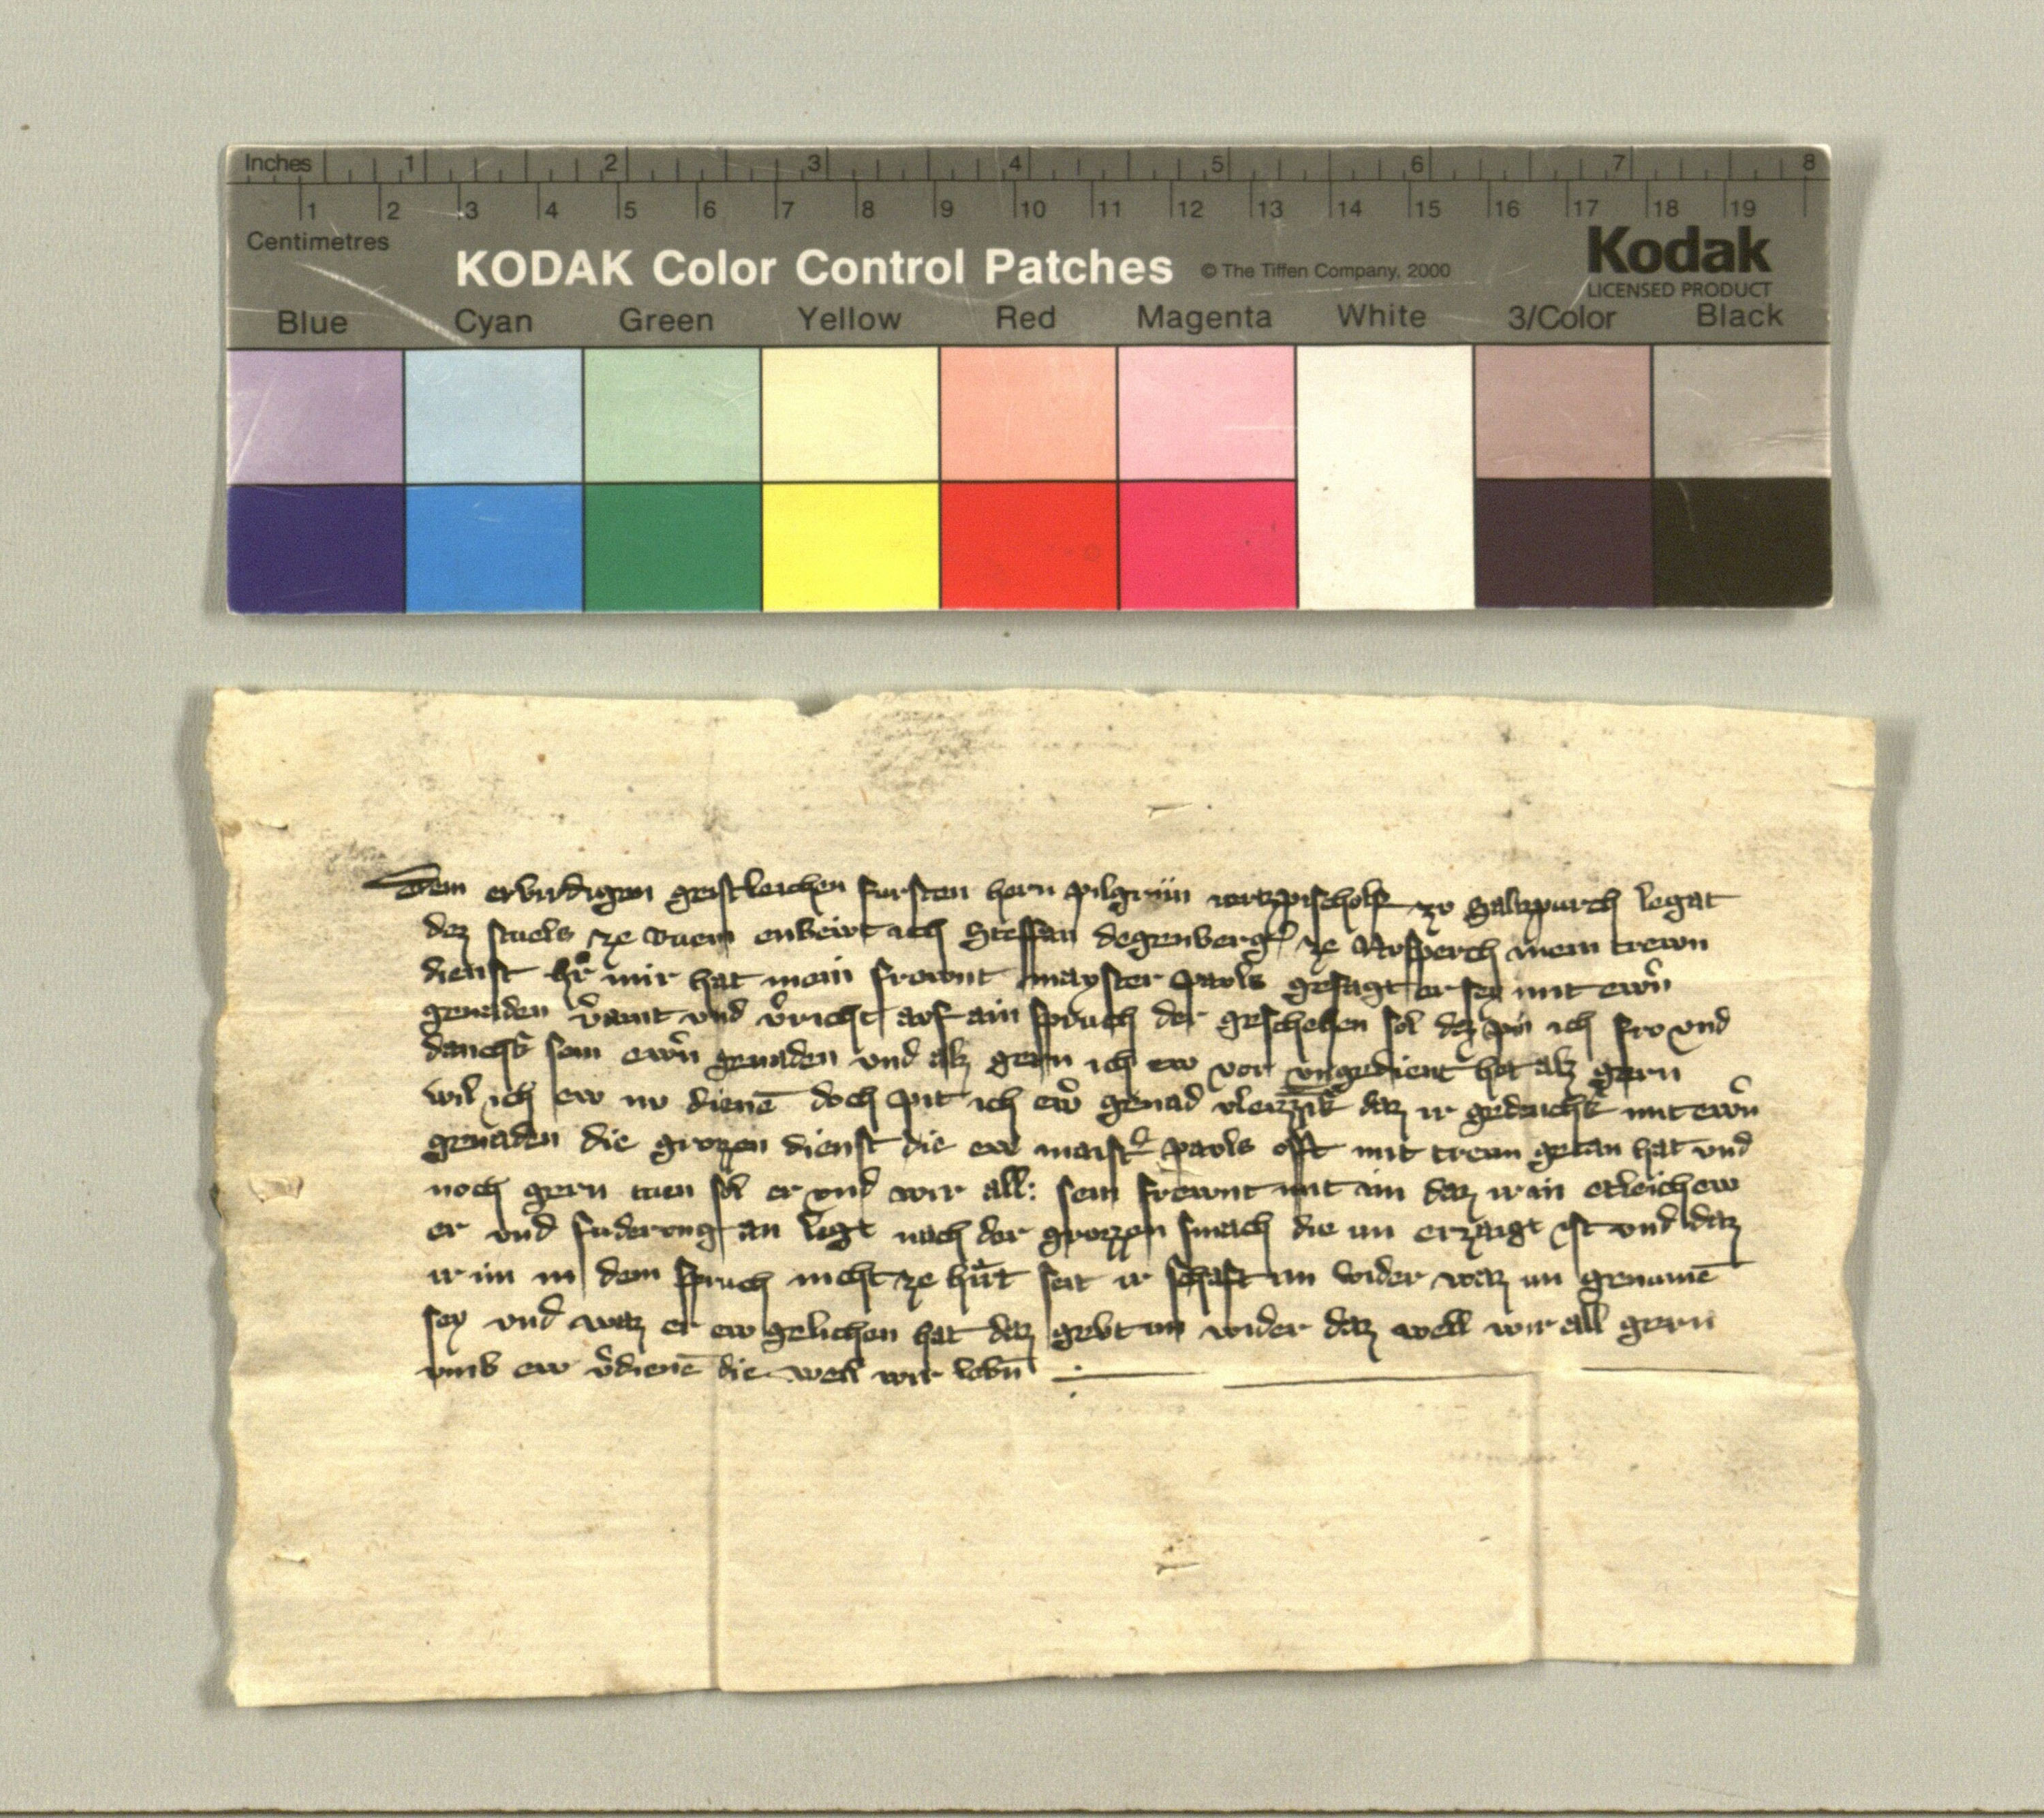 Inches 1 2 3 4 5 6 7 8
1 2 3 4 5 6 7 8 9 10 11 12 13 14 15 16 17 18 19
Centimetres
KODAK Color Control Patches © The Tiffen Company, 2000 Kodak
LICENSED PRODUCT
Blue Cyan Green Yellow Red Magenta White 3/Color Black
Dem erbirdigen geistleichen fursten hern pilgrim ertzpischolf zv Saltzpurch legat
dez stuels ze Ruem enbeivt ich Steffan degenberger ze mein trewn
dienst mir hat mein frewnt mayster pavls gesagt er sey mit ewrn
genaden vnd vricht avf ain spruch der geschehen sol dez pin ich fro vnd
ewrn genaden vnd alz gern ich ew vor vngedient het alz gern
wil ich ew nv dienē doch pit ich ewr genad daz ir mit ewrn
genaden die grozen dienst die ew maister pavls offt mit trewn getan hat vnd
noch gern tuen sol er vnd wir all: sein frewnt mit im daz ir im etleichew
er vnd fuderung an legt nach der grozzen smach die im erzaigt ist vnd daz
ir im in dem spruch nicht ze seit ir schaft im wider waz im genumē
sey vnd waz er ew gelichen hat daz gebt im wider daz well wir all gern
vmb ew vdienē die weil wir lebn